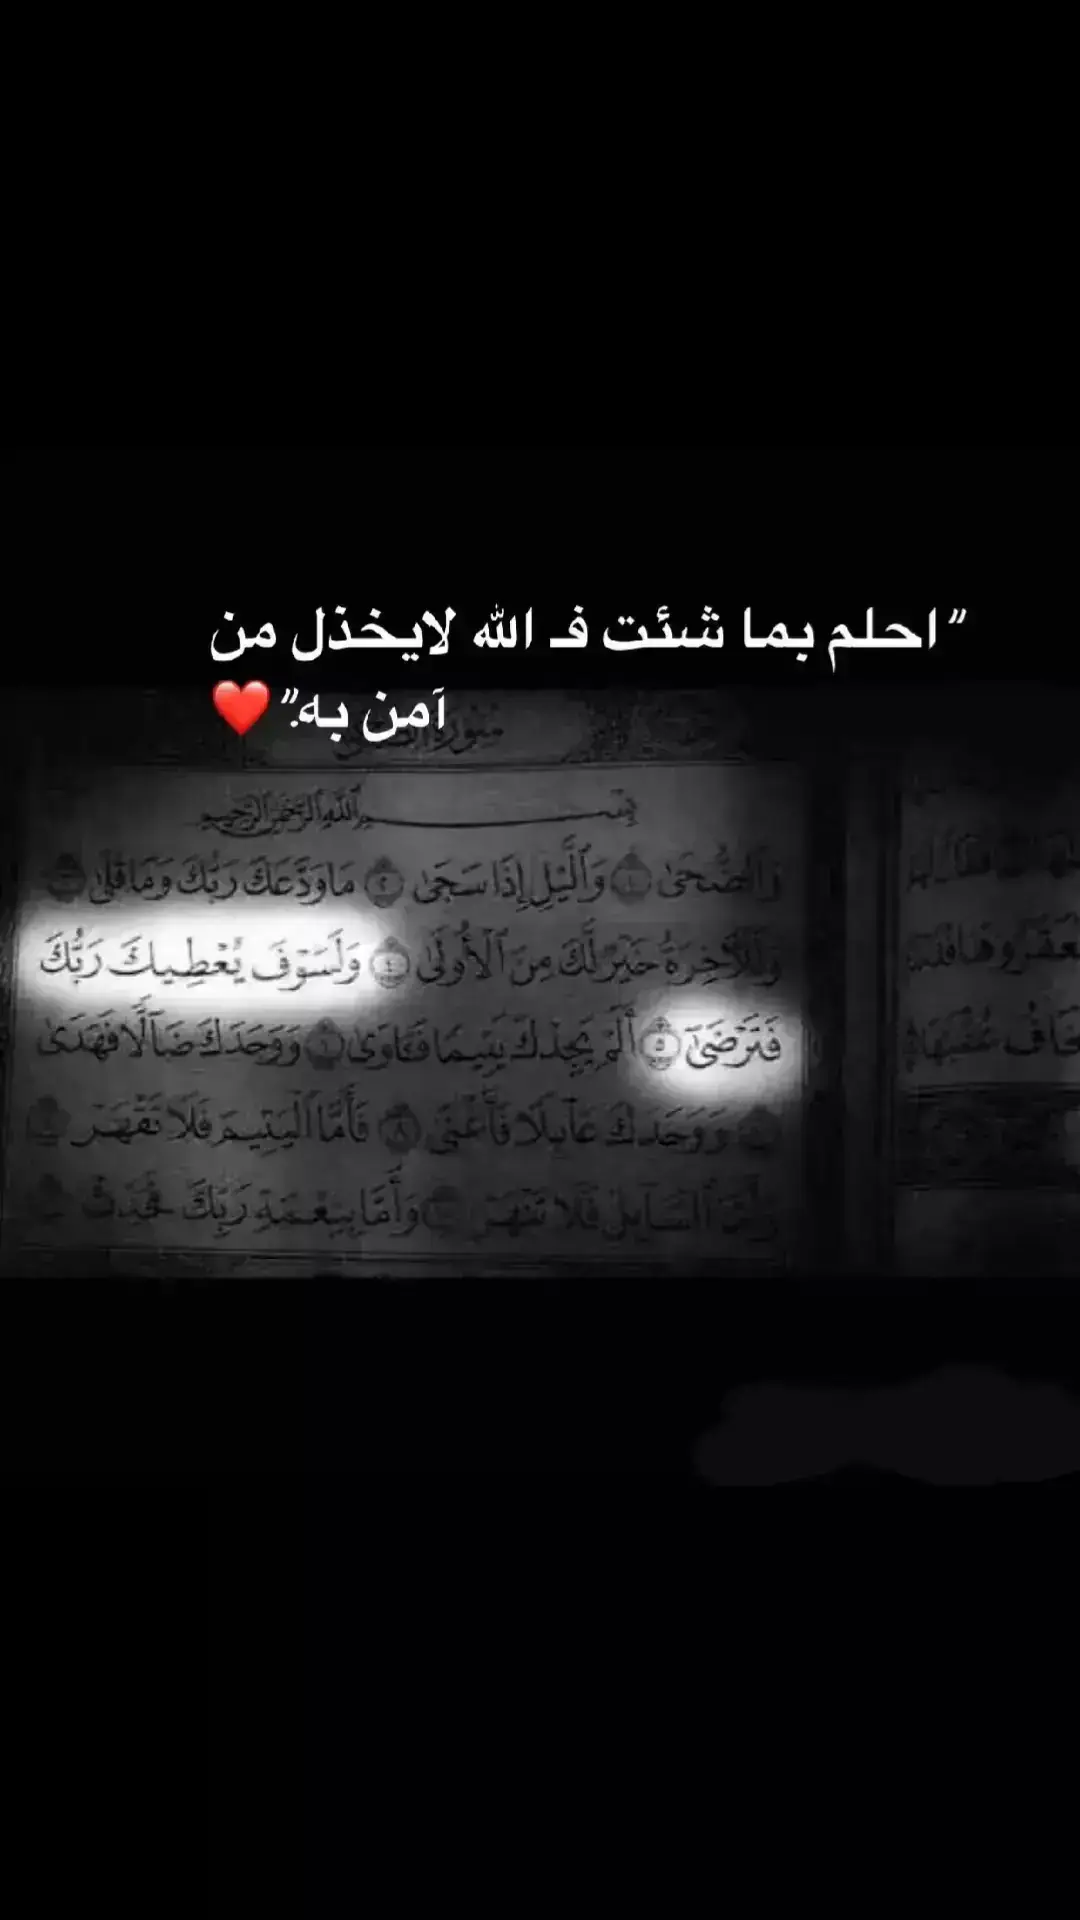 "احلم بما شئت فـ الله لايخذل من
آمن به."❤️
سورة الضحى
بسم الله الرحمن الرحيم
وَالضُّحَىٰ ١ وَالَّيْلِ إِذَا سَجَىٰ ٢ مَا وَدَّعَكَ رَبُّكَ وَمَا قَلَىٰ ٣
وَلَلْآخِرَةُ خَيْرٌ لَّكَ مِنَ الْأُولَىٰ ٤ وَلَسَوْفَ يُعْطِيكَ رَبُّكَ
فَتَرْضَىٰٓ ٥ أَلَمْ يَجِدْكَ يَتِيمًا فَـَٔاوَىٰ ٦ وَوَجَدَكَ ضَآلًّا فَهَدَىٰ
٧ وَوَجَدَكَ عَآئِلًا فَأَغْنَىٰ ٨ فَأَمَّا الْيَتِيمَ فَلَا تَقْهَرْ ٩
وَأَمَّا السَّآئِلَ فَلَا تَنْهَرْ ١٠ وَأَمَّا بِنِعْمَةِ رَبِّكَ فَحَدِّثْ ١١